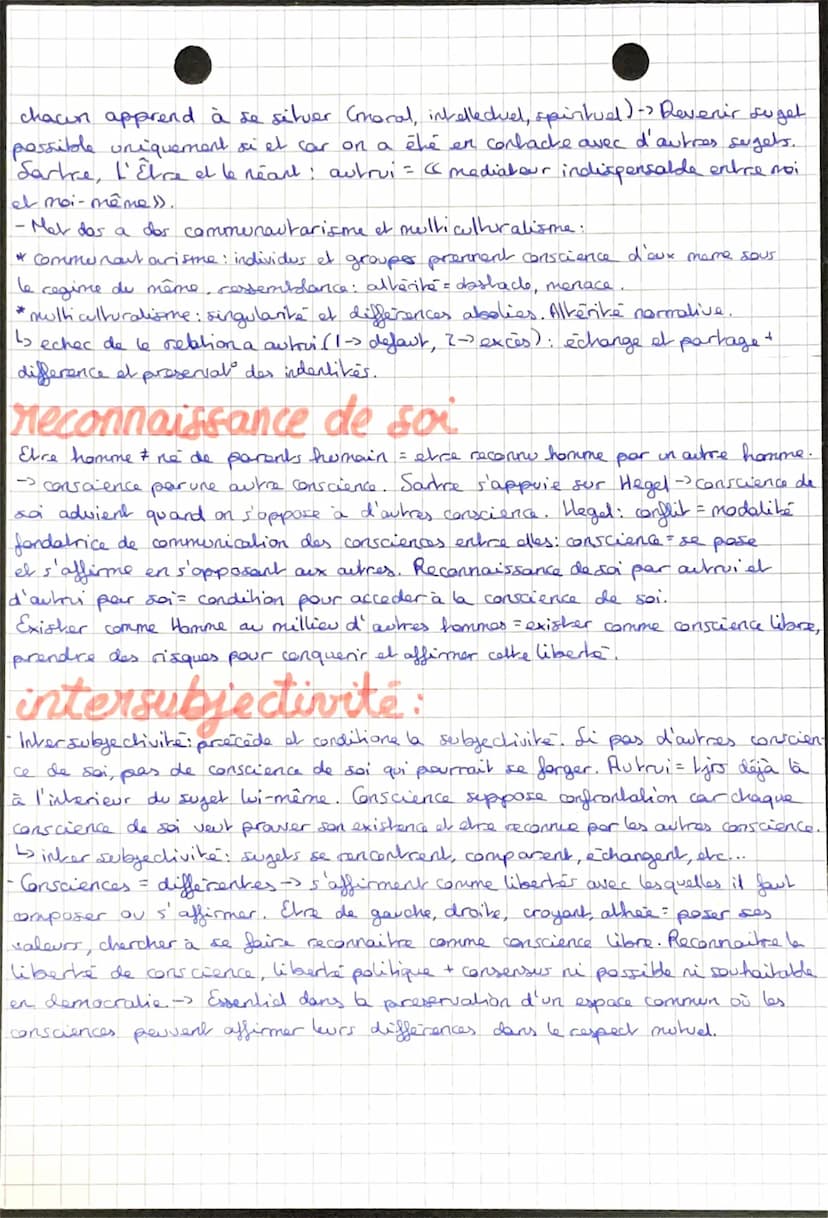 chacun apprend à se situer (moral, intellectuel, spirituel) -> Devenir sujet
possible uniquement si et car on a été en contacte avec d'autres sujets.
Sartre, L'Être et le néant : autrui = « mediateur indispensable entre moi
et moi-même ».
- Met dos a dos communautarisme et multiculturalisme :
* communautarisme : individus et groupes prennent conscience d'eux meme sous
le regime du même. ressemblance : altérité = obstacle, menace.
* multiculturalisme : singularité et différences abolies. Altérité normative.
↳ echec de la relation a autrui (1-> defaut, 2-> excès) : échange et partage +
difference et preservat° des indentités.
reconnaissance de soi
Etre homme ≠ né de parents humain = etre reconnu homme par un autre homme.
-> conscience par une autre conscience. Sartre s'appuie sur Hegel -> conscience de
soi advient quand on s'oppose à d'autres conscience. Hegel : conflit = modalité
fondatrice de communication des consciences entre elles : conscience = se pose
et s'affirme en s'opposant aux autres. Reconnaissance de soi par autrui et
d'autrui par soi = condition pour acceder à la conscience de soi.
Exister comme Homme au millieu d'autres hommes = exister comme conscience libre,
prendre des risques pour conquerir et affirmer cette liberté.
intersubjectivité :
- Intersubjectivité : précède et conditione la subjectivité. Si pas d'autres conscien-
ce de soi, pas de conscience de soi qui pourrait se forger. Autrui = tjrs déjà là
à l'interieur du sujet lui-même. Conscience suppose confrontation car chaque
conscience de soi veut prouver son existence et etre reconnue par les autres conscience.
↳ inter subjectivité : sujets se rencontrent, comparent, échangent, etc...
- Consciences = différentes -> s'affirment comme libertés avec lesquelles il faut
composer ou s'affirmer. Etre de gauche, droite, croyant, athée = poser ses
valeurs, chercher à se faire reconnaitre comme conscience libre. Reconnaitre la
liberté de conscience, liberté politique + consensus ni possible ni souhaitable
en democratie -> Essentiel dans la preservation d'un espace commun où les
consciences peuvent affirmer leurs différences dans le respect mutuel.